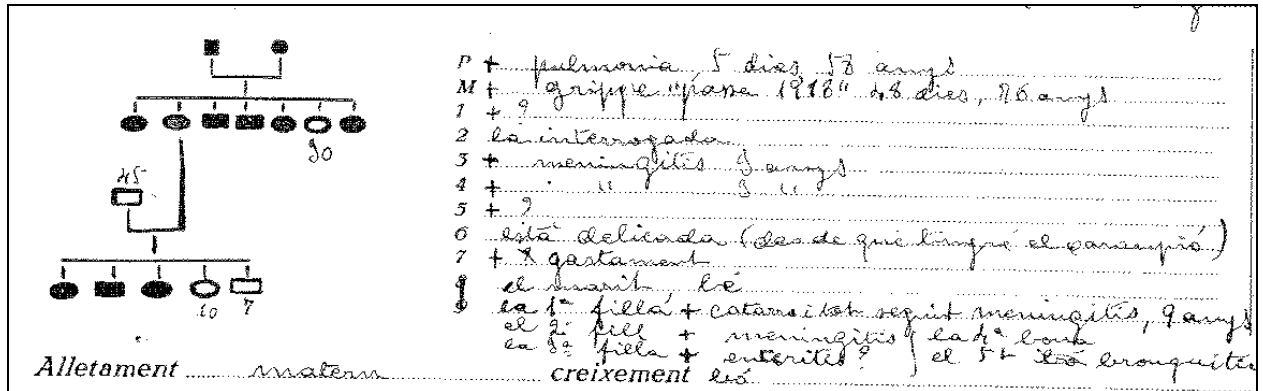 P + pulmonia, 5 dies, 58 anys
M + grippe "passa 1918" 48 dies, 76 anys
1 + ?
2 la interrogada
30
3 + meningitis 3 anys
45
4 + " " 3 "
5 + ?
6 està delicada (des de que tingué el xarampió)
7 + gastament
el marit, bé
la 1ª filla + catarro i tot seguit meningitis, 9 anys
10 7
el 2ⁿ fill + meningitis
la 4ª bona
la 3ª filla + enteritis?
el 5è bronquitis
Alletament matern creixement bó